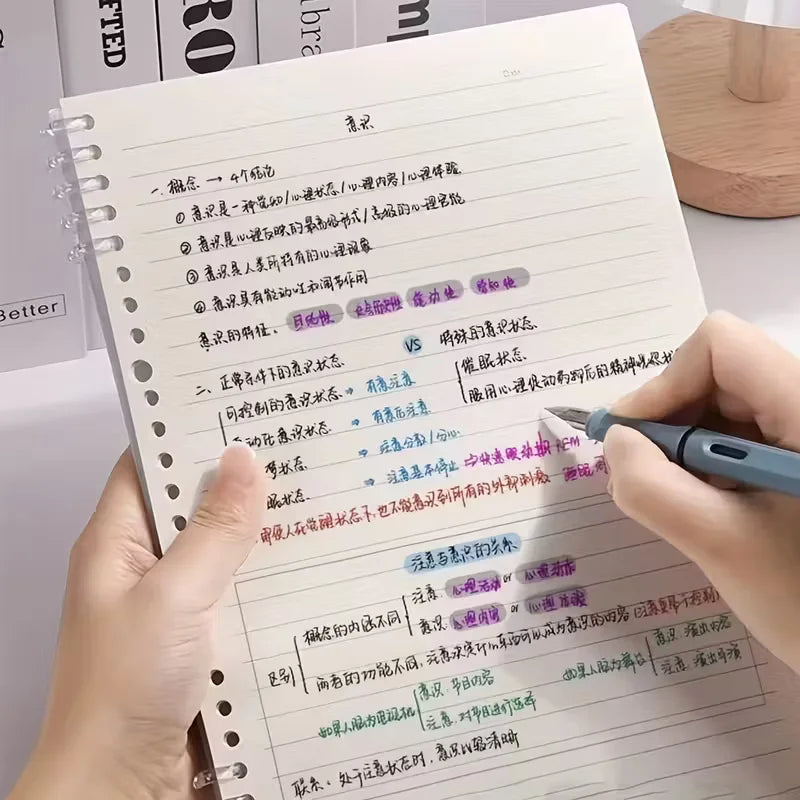 FTED
RO
libra
m
Better
意识
一、概念 → 4个结论
① 意识是一种觉知/心理状态/心理内容/心理体验
② 意识是心理反映的最高级形式/高级的心理官能
③ 意识是人类所特有的心理现象
④ 意识具有能动性和调节作用
意识的特征: 目的性 社会历史性 能动性
二、正常条件下的意识状态 VS 特殊的意识状态
可控制的意识状态 → 有意注意
自动化意识状态 → 有意后注意
梦状态 → 注意分散/分心
眠状态 → 注意基本停止 → 快速眼动期 REM
催眠状态
服用心理促动药物后的精神
即使人在觉醒状态下,也不能意识到所有的外部刺激
注意与意识的关系
区别
概念的内涵不同
注意: 心理活动 or 心理动作
意识: 心理内容 or 心理体验
两者的功能不同, 注意决定什么东西可以成为意识的内容
如果人脑为电视机
意识: 节目内容
注意: 对节目进行选择
如果人脑为舞台
意识: 演出内容
注意: 演出
联系: 处于注意状态时, 意识比较清晰